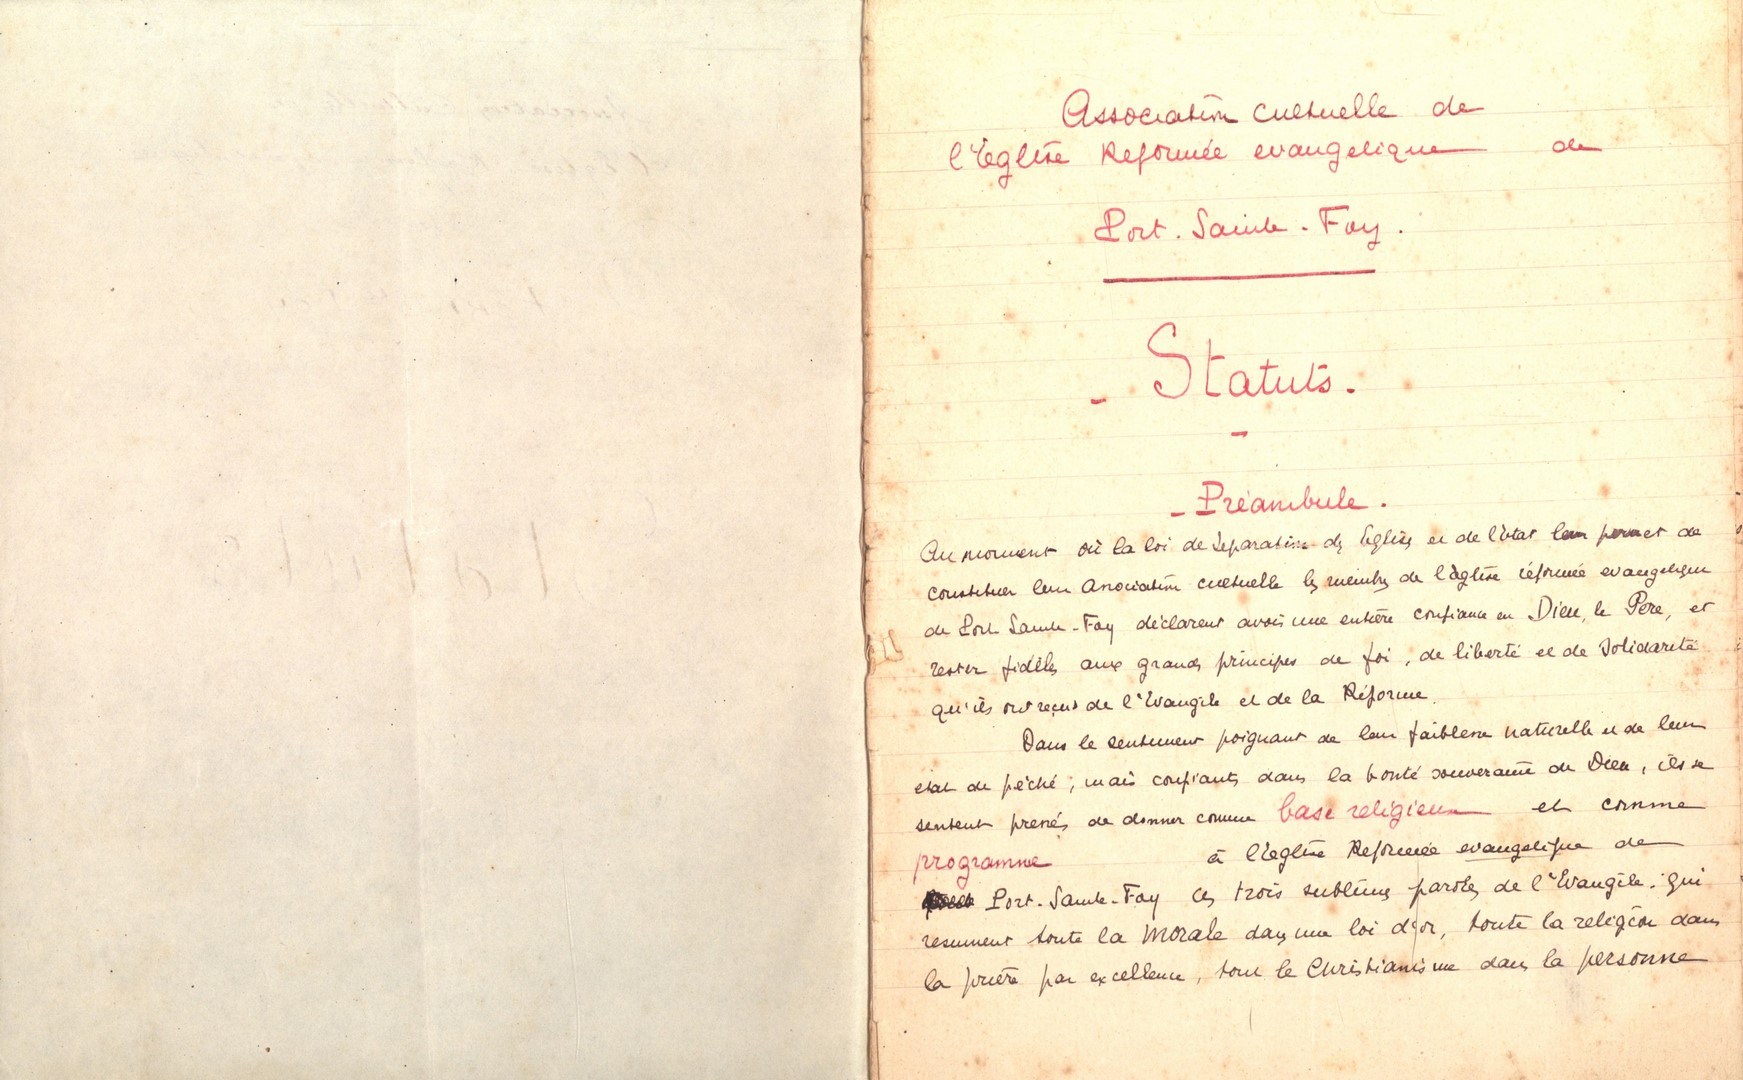 Association cultuelle de
l'Eglise Réformée evangelique de
Port-Sainte-Foy.
- Statuts. -
- Préambule.
Au moment où la loi de Séparation des Eglises et de l'état leur permet de
constituer leur Association cultuelle les membres de l'Eglise réformée evangelique
de Port Sainte-Foy déclarent avoir une entière confiance en Dieu, le Père, et
rester fidèles aux grands principes de foi, de liberté et de Solidarité
qu'ils ont reçus de l'Evangile et de la Réforme.
Dans le sentiment poignant de leur faiblesse naturelle et de leur
état de péché ; mais confiants dans la bonté souveraine de Dieu, ils se
sentent pressés de donner comme base religieuse et comme
programme à l'Eglise Réformée evangelique de
Port-Sainte-Foy ces trois sublimes paroles de l'Evangile. qui
resument toute la Morale dans une loi d'or, toute la religion dans
la prière par excellence, tout le Christianisme dans la personne